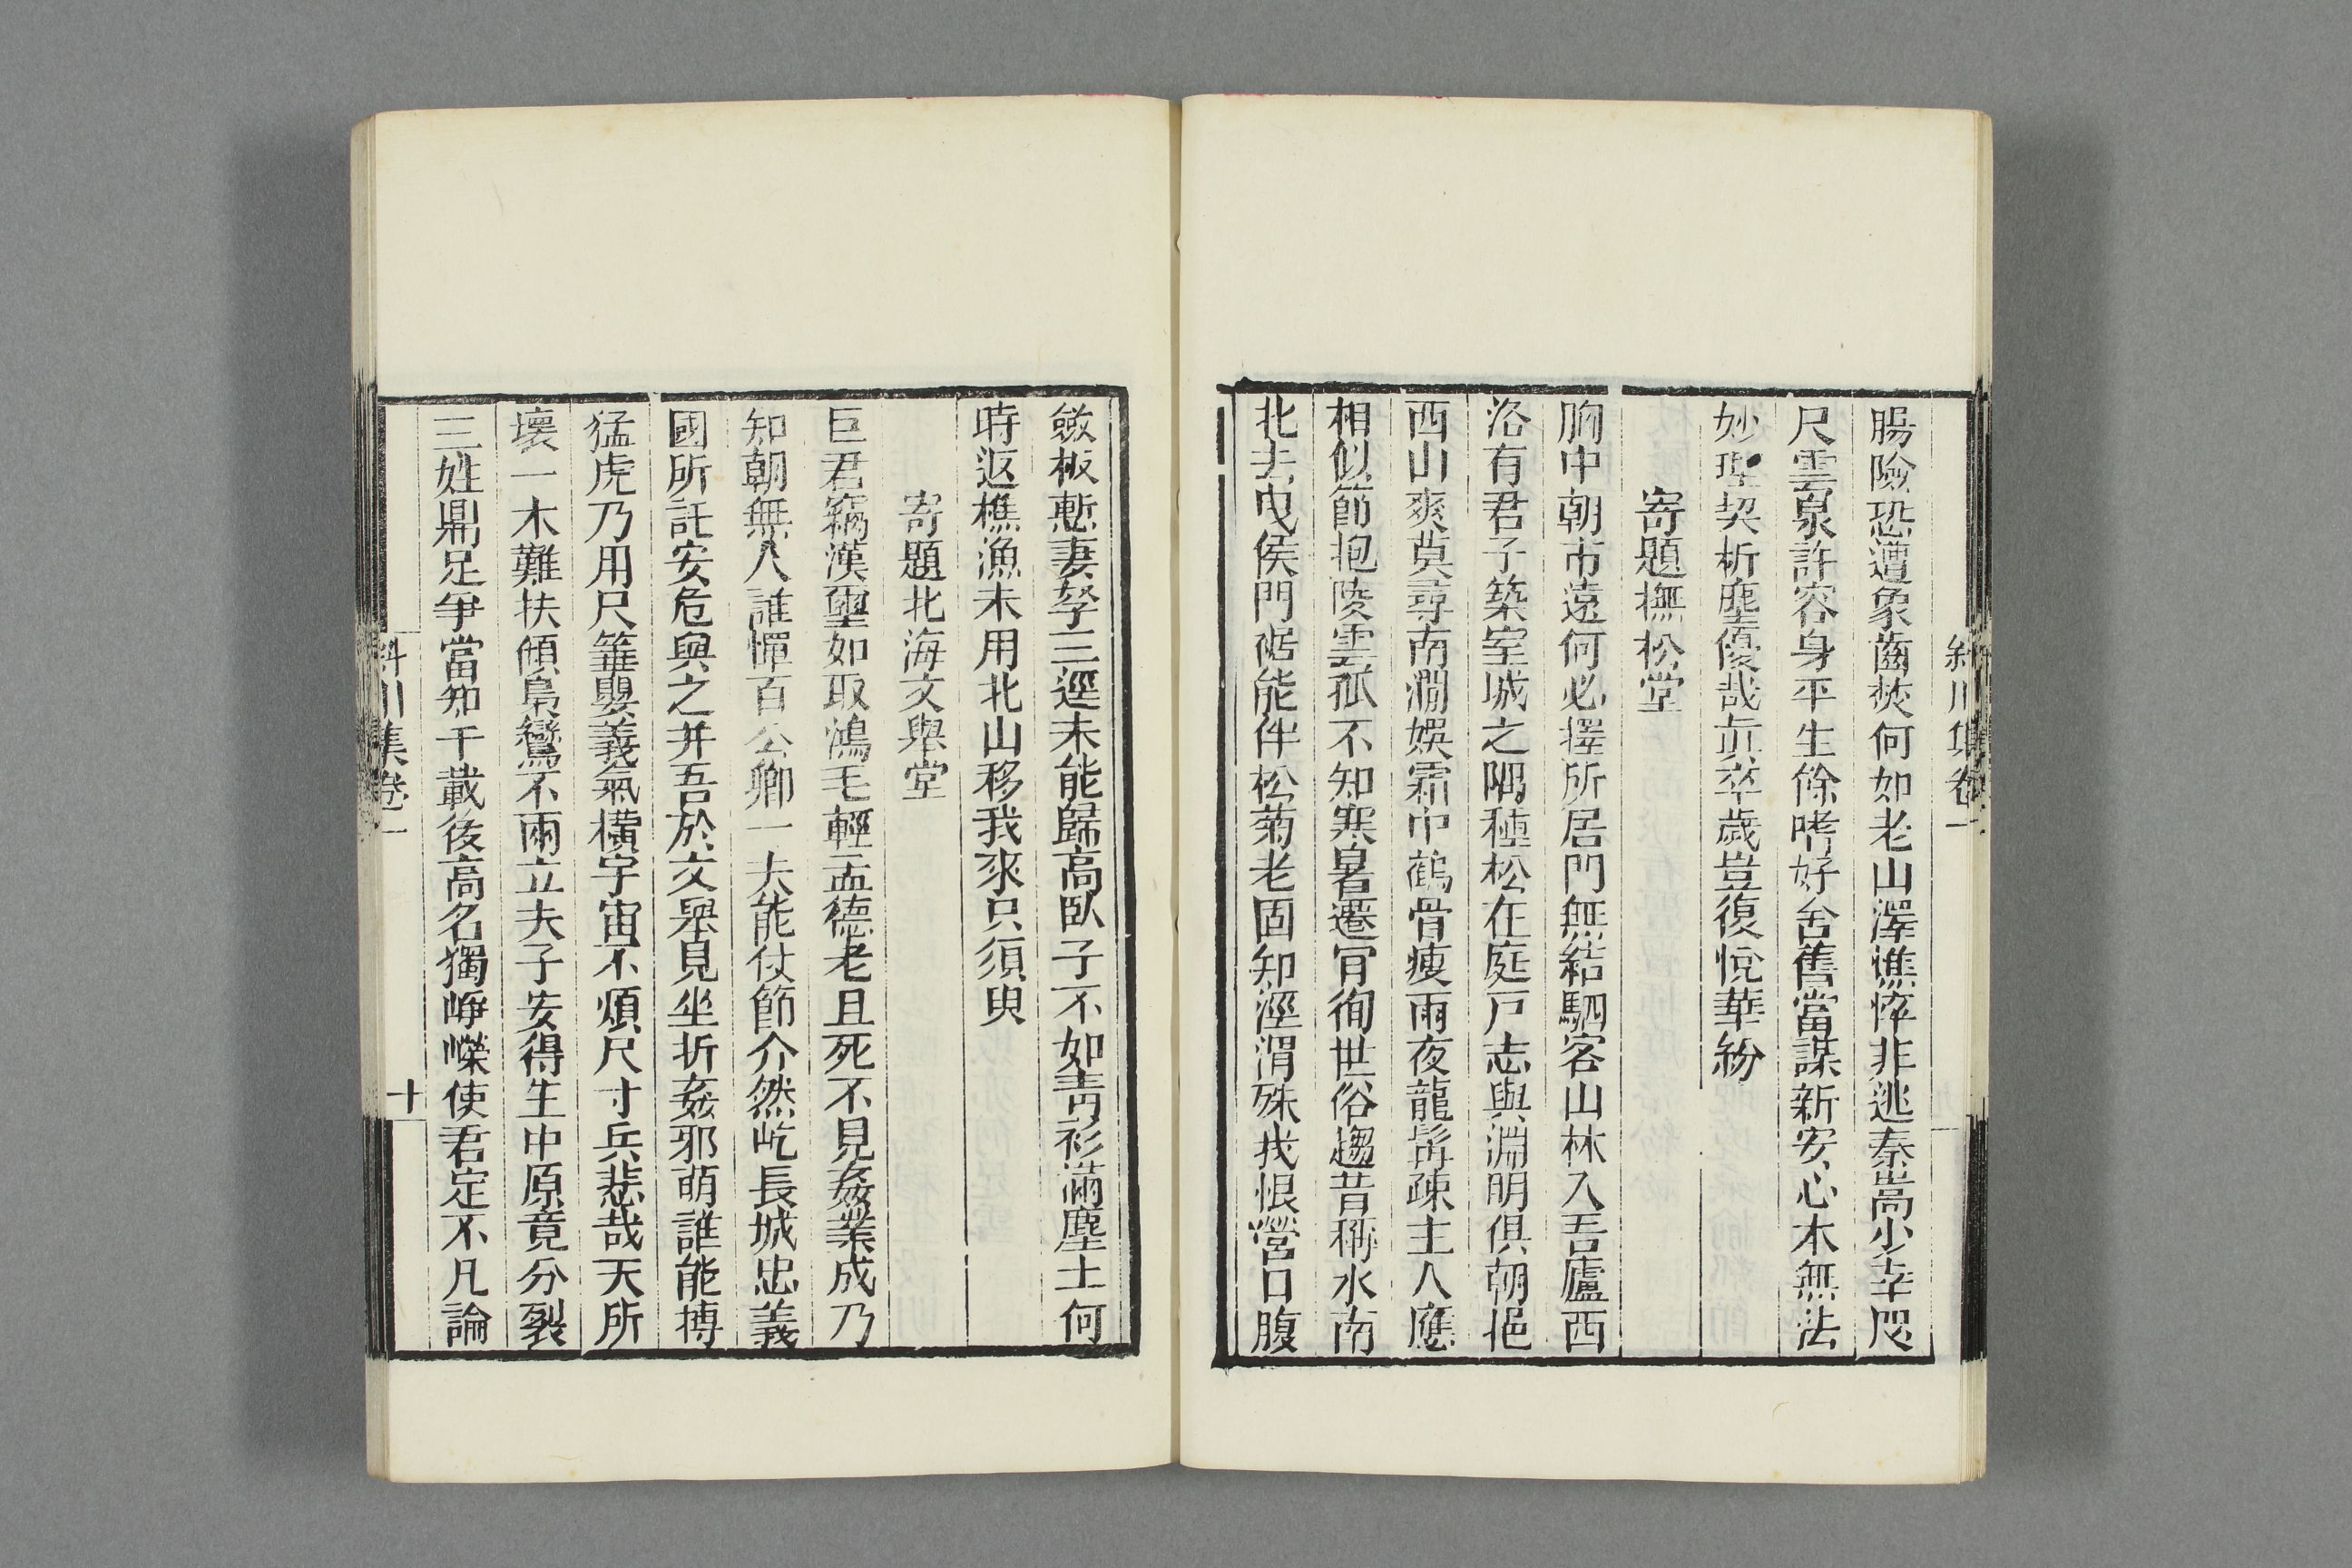 腸險恐遭象齒焚何如老山澤憔悴非逃秦嵩少幸咫
尺雲泉許容身平生餘嗜好舍舊當謀新安心本無法
妙理契析塵優哉眞卒歲豈復悅華紛
寄題撫松堂
胸中朝市遠何必擇所居門無結駟客山林入吾廬西
洛有君子築室城之隅種松在庭戸志與淵明俱朝挹
西山爽莫尋南澗娛霜巾鶴骨瘦雨夜龍髯疎主人應
相似節抱陵雲孤不知寒暑遷肎徇世俗趨昔稱水南
北去曳侯門裾能伴松菊老固知涇渭殊我恨營口腹
斂板慙妻孥三逕未能歸高臥子不如靑衫滿塵土何
時返樵漁未用北山移我來只須臾
寄題北海文舉堂
巨君竊漢璽如取鴻毛輕孟德老且死不見姦業成乃
知朝無人誰憚百公卿一夫能仗節介然屹長城忠義
國所託安危與之并吾於文舉見坐折姦邪萌誰能搏
猛虎乃用尺箠嬰義氣橫宇宙不煩尺寸兵悲哉天所
壞一木難扶傾梟鸞不兩立夫子安得生中原竟分裂
三姓鼎足爭當知千載後高名獨崢嶸使君定不凡論
斜川集卷一
十